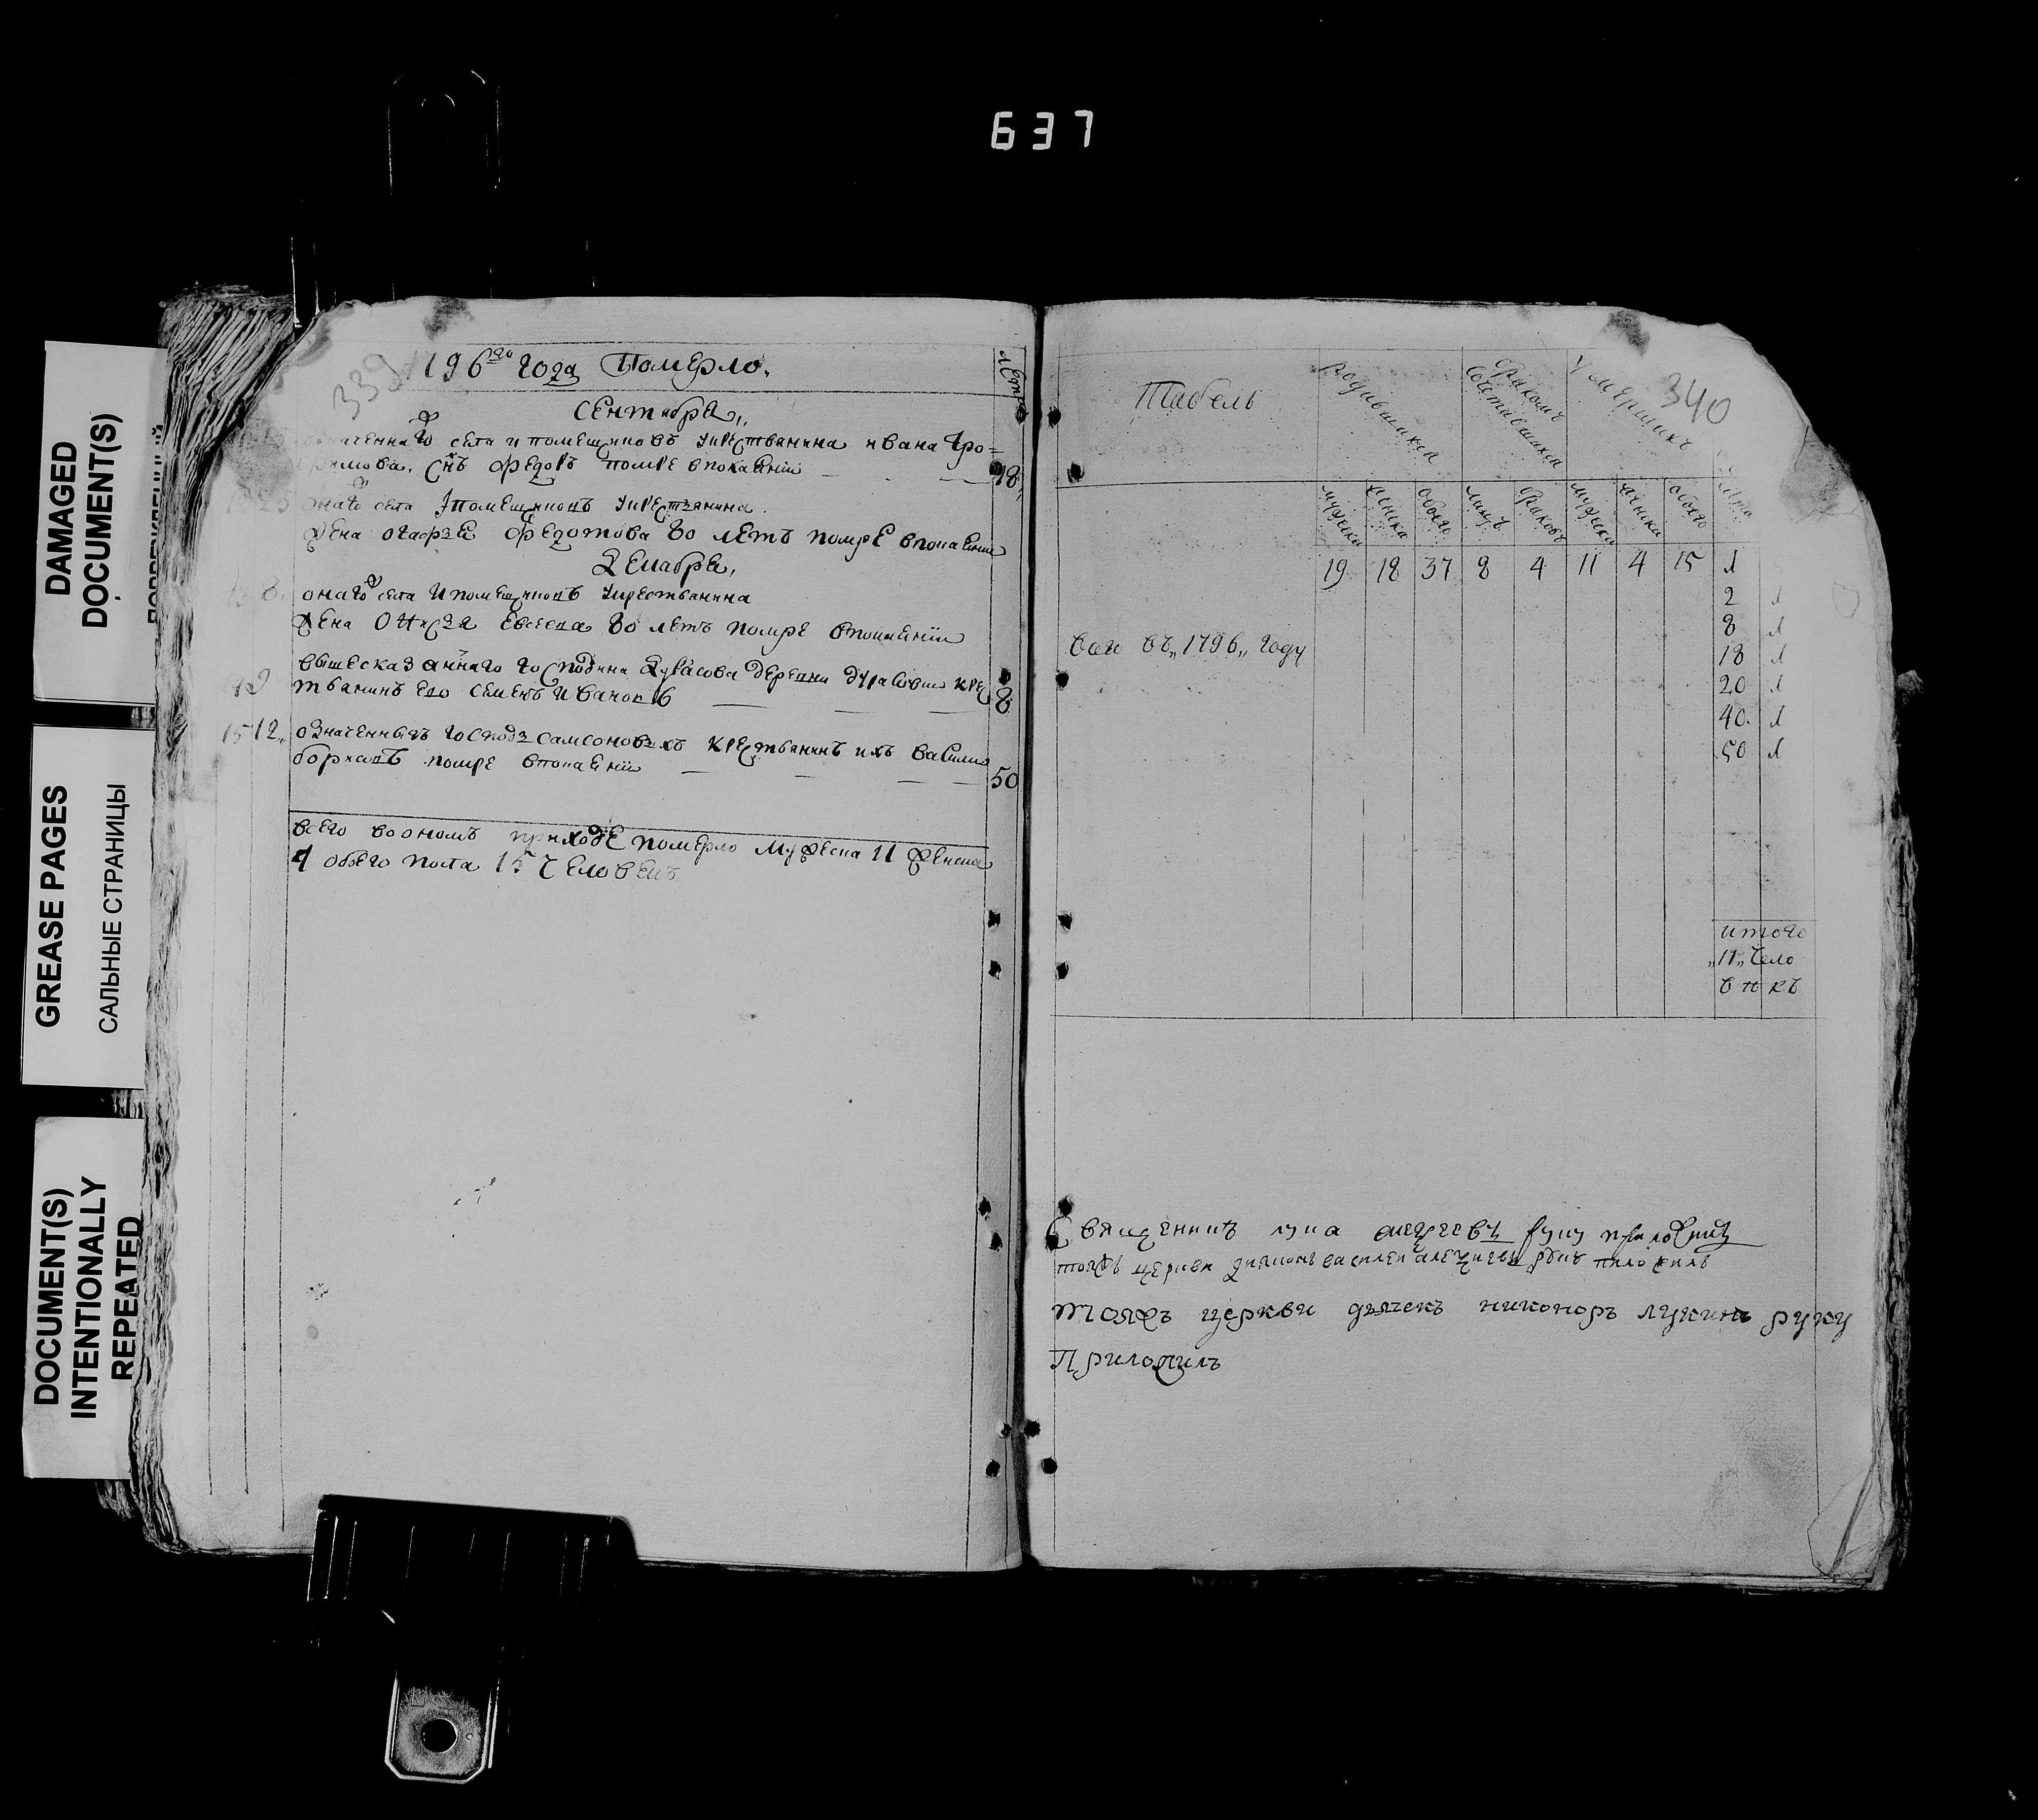 637
DAMAGED
DOCUMENT(S)
GREASE PAGES
САЛЬНЫЕ СТРАНИЦЫ
DOCUMENT(S)
INTENTIONALLY
REPEATED
339
1796го года Померло.
сентября,,
означеннаго села и помещиковъ крестьянина ивана тро=
снъ федоръ помре в покаянiи 18
онаго села помещиковъ крестьянина
жена федотова 80 летъ помре в покаянiи
декабря,
8. онаго села и помещиковъ крестьянина
жена евсеева 80 летъ помре в покаянiи
9 вышесказаннаго господина деревни крес
тьянинъ ево семенъ иванов 8
15 12,, означенныхъ господъ самсоновыхъ крестьянинъ ихъ василей
борисовъ помре в покаянiи 50
всего во ономъ приходе померло мужеска 11 женска
4 обоего пола 15 человекъ
340
Табель
родившихся
бракомъ сочетавшихся
умерших
мужеска женска обоего лицъ браковъ мужеска женска обоего лета
19 18 37 8 4 11 4 15 л
2 л
8 л
всего въ „1796„ году
18 л
20 л
40. л
50 л
итого
„11„ чело
векъ
Священникъ лука андреевъ руку приложилъ
тояжъ церкви василей алексеевъ приложилъ
тояжъ церкви дьячекъ никоноръ лукинъ руку
приложилъ